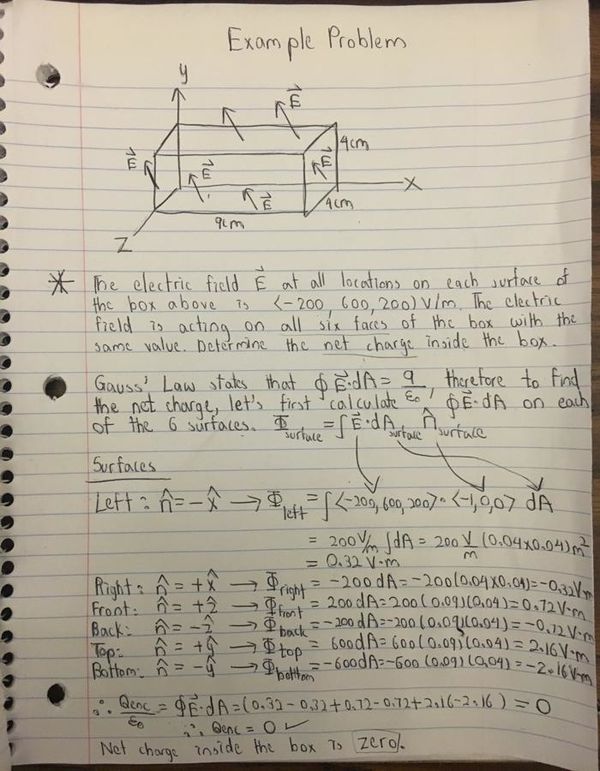 Example Problem
y
E⃗
4cm
E⃗
E⃗
E⃗
X
E⃗
4cm
9cm
Z
* The electric field E⃗ at all locations on each surface of
the box above is ⟨-200, 600, 200⟩ V/m. The electric
field is acting on all six faces of the box with the
same value. Determine the net charge inside the box.
Gauss' Law states that ∮E⃗·dA = q/ε₀, therefore to find
the net charge, let's first calculate ∮E⃗·dA on each
of the 6 surfaces. Φsurface = ∫E⃗·dAsurface n̂surface
Surfaces
Left: n̂ = -x̂ → Φleft = ∫⟨-200, 600, 200⟩·⟨-1,0,0⟩ dA
= 200 V/m ∫dA = 200 V/m (0.04×0.04)m²
= 0.32 V·m
Right: n̂ = +x̂ → Φright = -200 dA = -200(0.04×0.04) = -0.32V·m
Front: n̂ = +ẑ → Φfront = 200 dA = 200(0.09)(0.04) = 0.72 V·m
Back: n̂ = -ẑ → Φback = -200 dA = -200(0.09)(0.04) = -0.72 V·m
Top: n̂ = +ŷ → Φtop = 600 dA = 600(0.09)(0.04) = 2.16 V·m
Bottom: n̂ = -ŷ → Φbottom = -600 dA = -600(0.09)(0.04) = -2.16 V·m
∴ Qenc/ε₀ = ∮E⃗·dA = (0.32 - 0.32 + 0.72 - 0.72 + 2.16 - 2.16) = 0
∴ Qenc = 0 ✓
Net charge inside the box is zero.